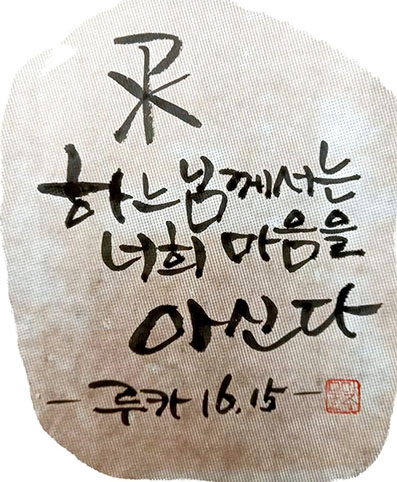 하느님께서는
너희 마음을
아신다
- 루카 16.15 -